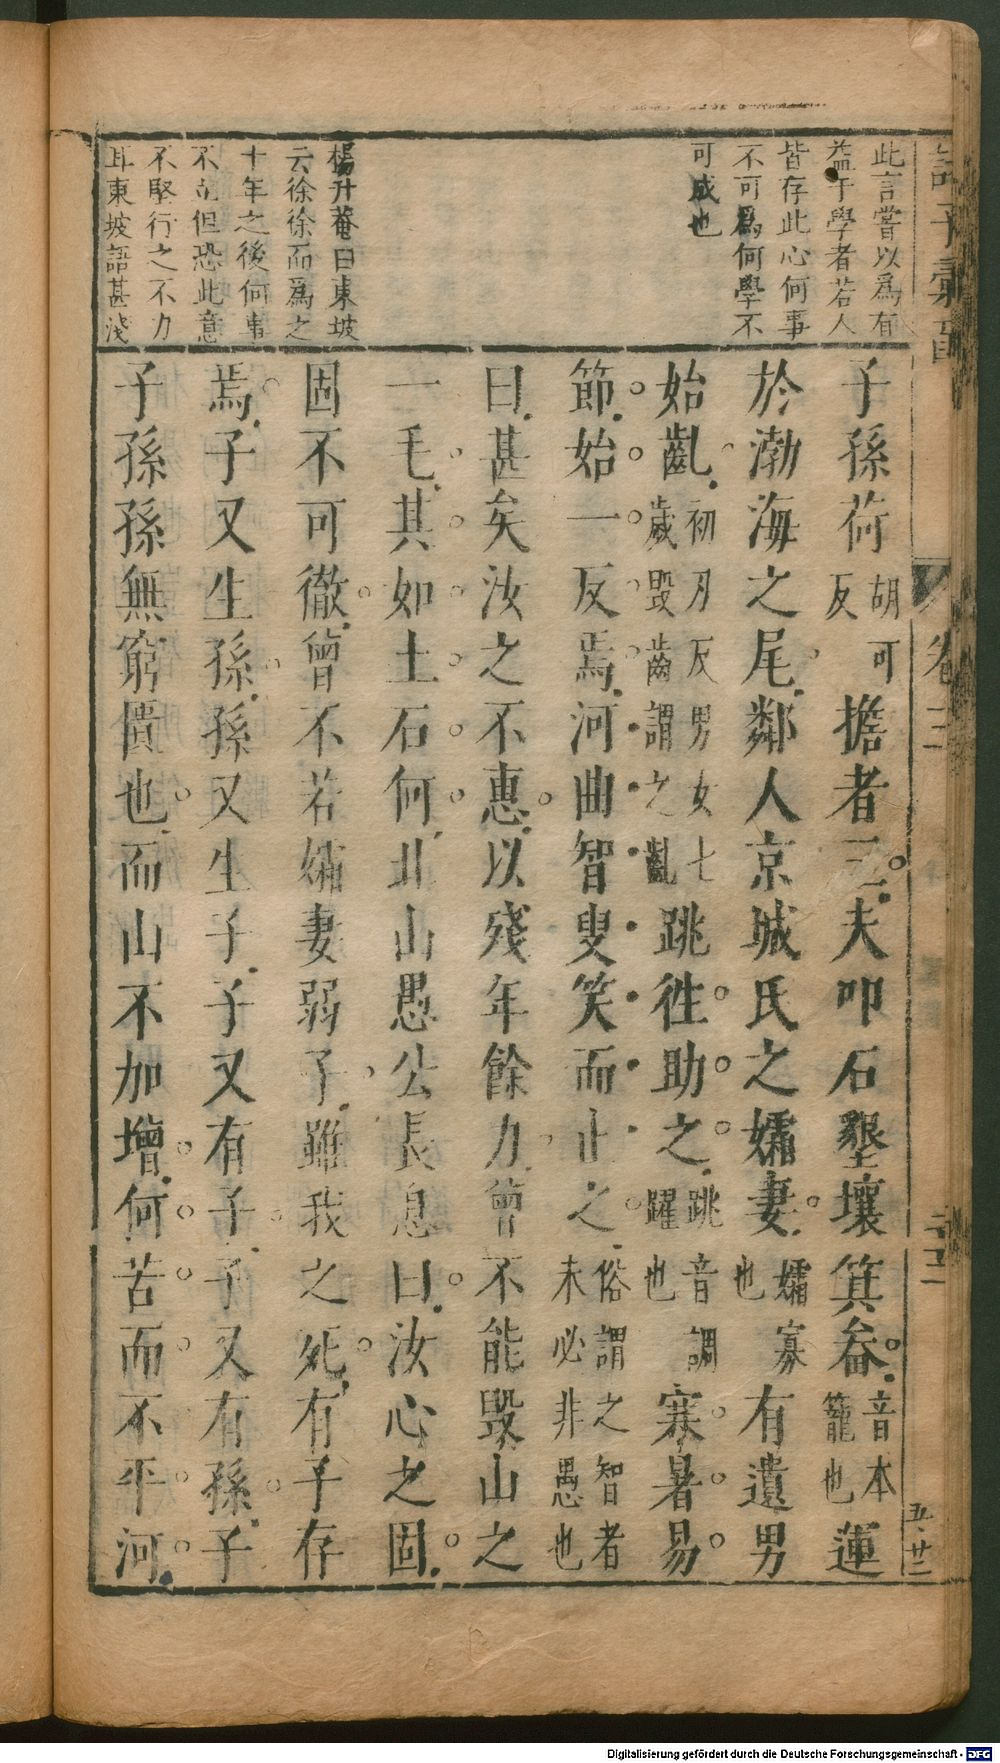 此言嘗以爲有
益于學者若人
皆存此心何事
不可爲何學不
可成也
楊升菴曰東坡
云徐徐而爲之
十年之後何事
不立但恐此意
不堅行之不力
耳東坡語甚淺
子孫荷胡可反擔者三夫叩石墾壤箕畚音本籠也運
於渤海之尾鄰人京城氏之孀妻孀寡也有遺男
始齓初刃反男女七歲毀齒謂之齓跳徃助之跳音調躍也寒暑易
節始一反焉河曲智叟笑而止之俗謂之智者未必非愚也
曰甚矣汝之不惠以殘年餘力曾不能毀山之
一毛其如土石何北山愚公長息曰汝心之固
固不可徹曾不若孀妻弱子雖我之死有子存
焉子又生孫孫又生子子又有子子又有孫子
子孫孫無窮匱也而山不加增何苦而不平河
卷三
五廿二
Digitalisierung gefördert durch die Deutsche Forschungsgemeinschaft - DFG